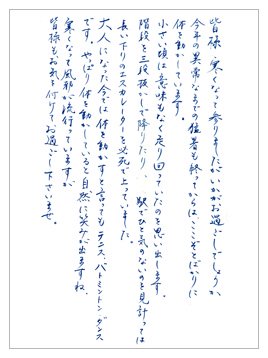 皆様、寒くなって参りましたがいかがお過ごしでしょうか
今年の異常なまでの猛暑も終ってからは、ここぞとばかりに
体を動かしています。
小さい頃は意味もなく走り回っていたのを思い出します。
階段を三段抜かしで降りたり、駅でひと気のないのを見計っては
長い下りのエスカレーターを必死で上っていました。
大人になった今では体を動かすと言ってもテニス、バトミントン、ダンス
です。やっぱり体を動かしていると自然に笑みが出ますね。
寒くなって風邪が流行っていますが
皆様もお気を付けてお過ごし下さいませ。